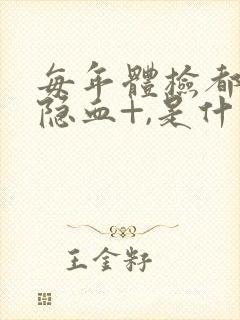 每年體檢都
隐血+,是什
王金籽